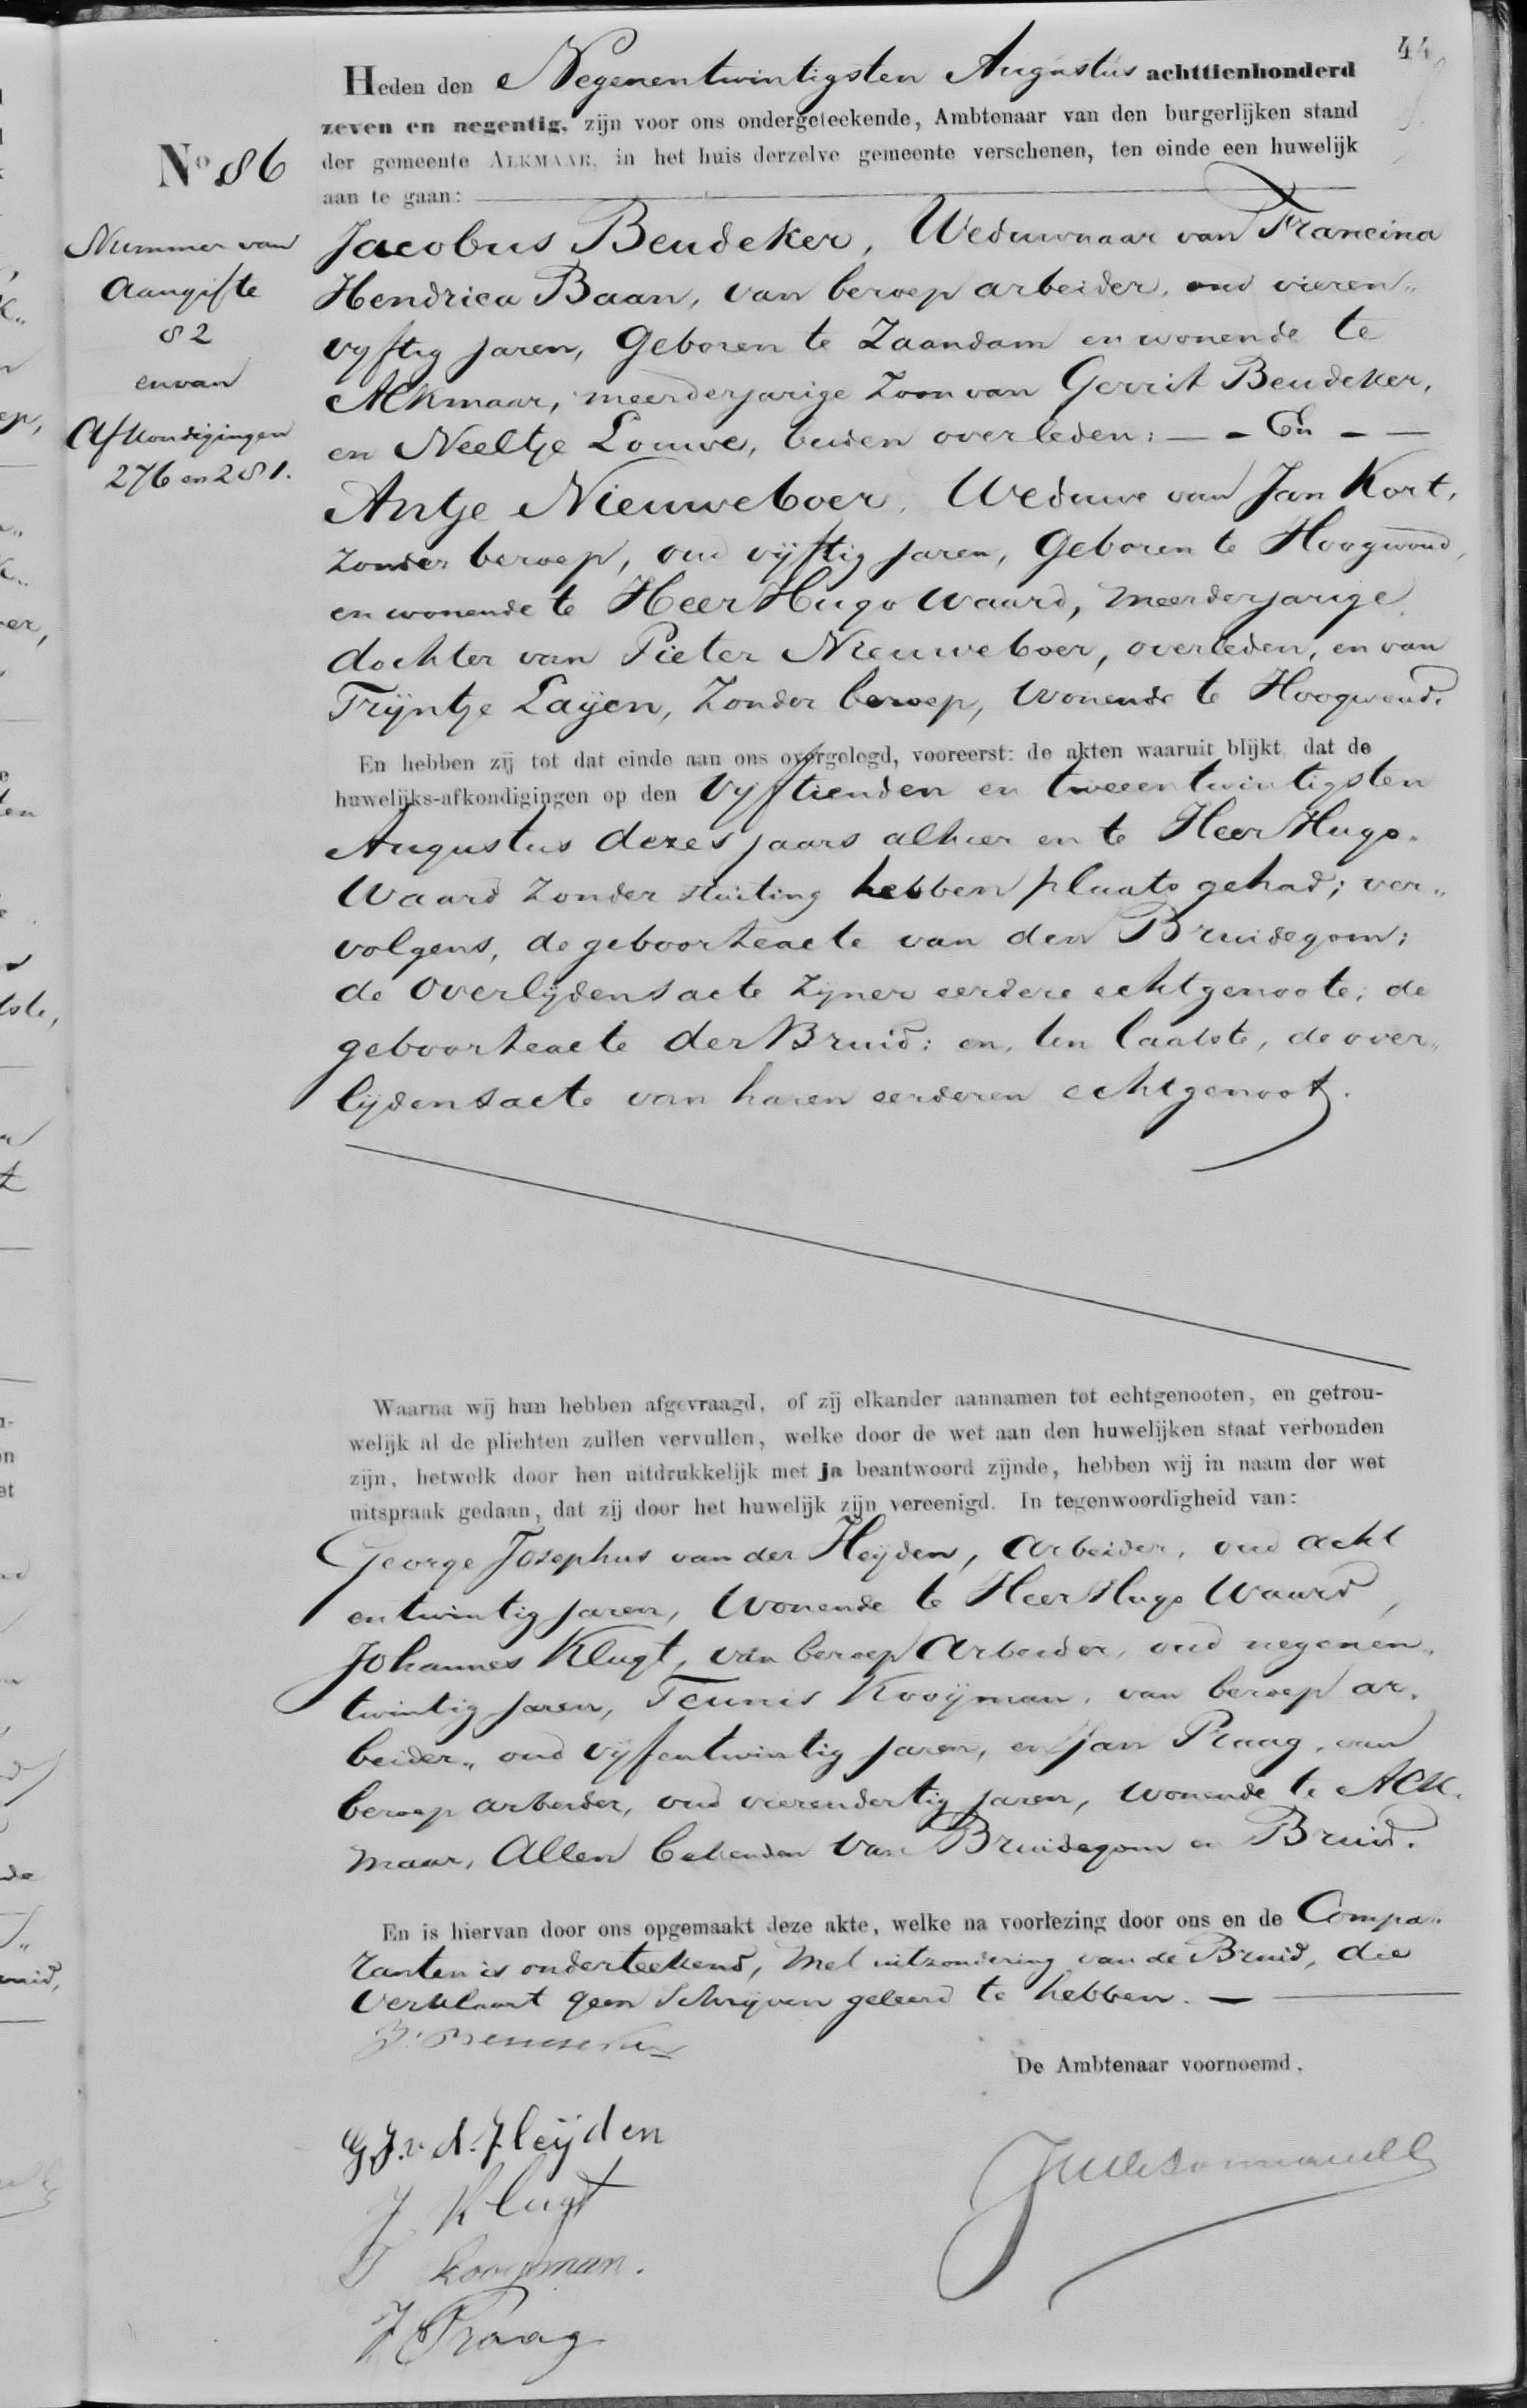 44
Heden den Negenentwintigsten Augustus achttienhonderd
zeven en negentig, zijn voor ons ondergeteekende, Ambtenaar van den burgerlijken stand
No 86
der gemeente ALKMAAR, in het huis derzelve gemeente verschenen, ten einde een huwelijk
aan te gaan:
Nummer van
Aangifte
82
en van
Afkondigingen
276 en 281.
Jacobus Beudeker, Weduwnaar van Francina
Hendrica Baan, van beroep arbeider, oud vieren„
vyftig jaren, Geboren te Zaandam en wonende te
Alkmaar, meerderjarige Zoon van Gerrit Beudeker,
en Neeltje Louwe, beiden overleden: — - En - —
Antje Nieuweboer, Weduwe van Jan Kort,
Zonder beroep, oud vijftig jaren, Geboren te Hoogwoud,
en wonende te HeerHugoWaard, meerderjarige
dochter van Pieter Nieuweboer, overleden, en van
Trijntje Layen, Zonder beroep, Wonende te Hoogwoud.
En hebben zij tot dat einde aan ons overgelegd, vooreerst: de akten waaruit blijkt dat de
huwelijks-afkondigingen op den Vyftienden en tweeentwintigsten
Augustus dezes jaars alhier en te HeerHugo„
Waard Zonder stuiting hebben plaats gehad; ver„
volgens, de geboorteacte van den Bruidegom;
de Overlijdensacte Zijner eerdere echtgenoote; de
geboorteacte der Bruid: en, ten laatste, de over„
lijdensacte van haren eerderen echtgenoot.
Waarna wij hun hebben afgevraagd, of zij elkander aannamen tot echtgenooten, en getrou-
welijk al de plichten zullen vervullen, welke door de wet aan den huwelijken staat verbonden
zijn, hetwelk door hen uitdrukkelijk met ja beantwoord zijnde, hebben wij in naam der wet
uitspraak gedaan, dat zij door het huwelijk zijn vereenigd. In tegenwoordigheid van:
George Josephus van der Heyden, Arbeider, oud acht
entwintig jaren, Wonende te HeerHugoWaard,
Johannes Klugt, van beroep Arbeider, oud negenen„
twintig jaren, Teunis Kooijman, van beroep ar„
beider„ oud vijfentwintig jaren, en Jan Praag, van
beroep arbeider, oud vierendertig jaren, Wonende te Alk„
maar, Allen bekenden van Bruidegom en Bruid.
En is hiervan door ons opgemaakt deze akte, welke na voorlezing door ons en de Compa„
ranten is onderteekend, Met uitzondering van de Bruid, die
Verklaart geen Schrijven geleerd te hebben. —
De Ambtenaar voornoemd,
G.J.v.d.Heijden
J Klugt
T Kooijman.
J Praag